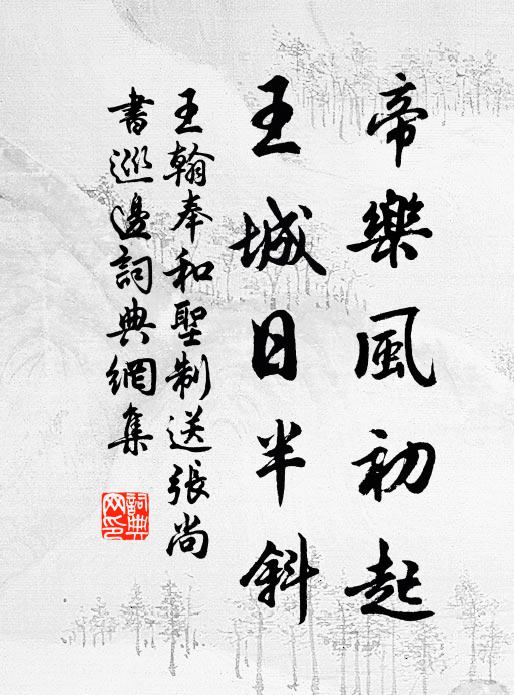 帝樂風初起
王城日半斜
王翰奉和聖制送張尚
書巡邊詞典網集
詞典
网印